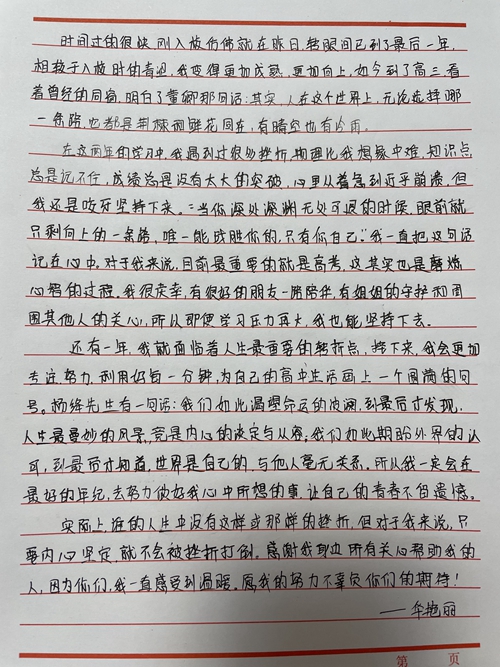 时间过的很快,刚入校仿佛就在昨日,转眼间已到了最后一年,
相较于入校时的青涩,我变得更加成熟,更加向上,如今到了高三,看
着曾经的同窗,明白了董卿那句话:其实,人在这个世界上,无论选择哪
一条路,也都是荆棘和鲜花同在,有晴空也有冷雨。
在这两年的学习中,我遇到过很多挫折,物理比我想象中难,知识点
总是记不住,成绩总是没有太大的突破,心里从着急到近乎崩溃,但
我还是咬牙坚持下来。“当你深处深渊无处可退的时候,眼前就
只剩向上的一条路,唯一能战胜你的,只有你自己。”我一直把这句话
记在心中。对于我来说,目前最重要的就是高考,这其实也是磨炼
心智的过程。我很庆幸,有很好的朋友一席陪伴,有姐姐的守护和周
围其他人的关心,所以即使学习压力再大,我也能坚持下去。
还有一年,我就面临着人生最重要的转折点,接下来,我会更加
专注,努力,利用好每一分钟,为自己的高中生活画上一个圆满的句
号。杨绛先生有一句话:我们如此渴望命运的波澜,到最后才发现,
人生最曼妙的风景,竟是内心的淡定与从容。我们如此期盼外界的认
可,到最后才知道,世界是自己的,与他人毫无关系。所以我一定会在
最好的年纪,去努力做好我心中所想的事,让自己的青春不留遗憾。
实际上,谁的人生中没有这样或那样的挫折,但对于我来说,只
要内心坚定,就不会被挫折打倒。感谢我身边所有关心帮助我的
人,因为你们,我一直感受到温暖。愿我的努力不辜负你们的期待!
——牟艳丽
第 页